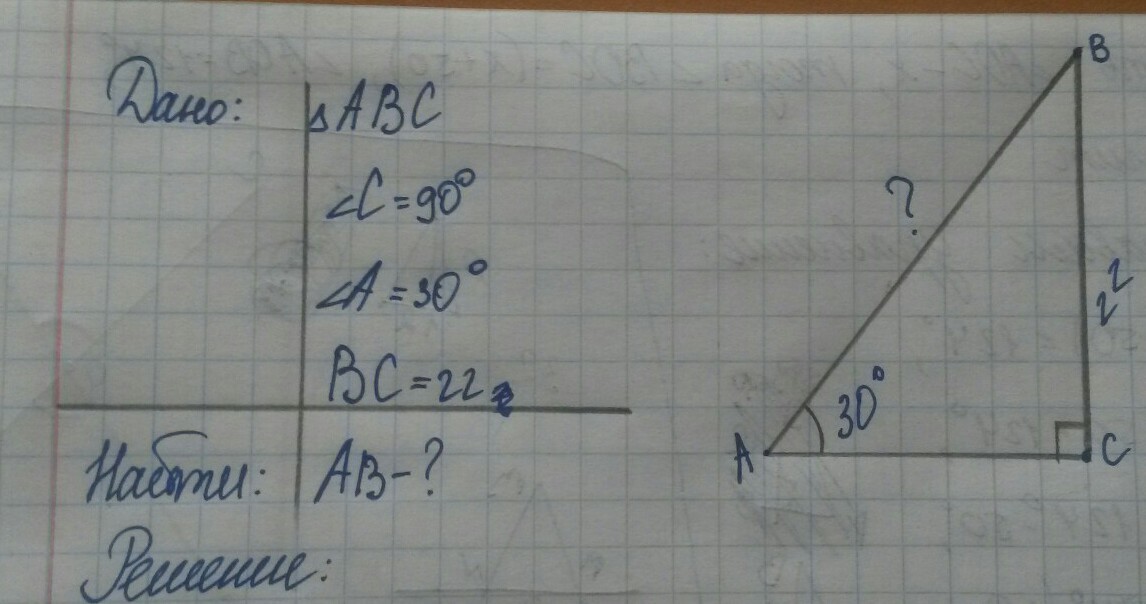 Дано: △ABC
∠C = 90°
∠A = 30°
BC = 22
Найти: AB - ?
Решение:
B
?
22
30°
A
C